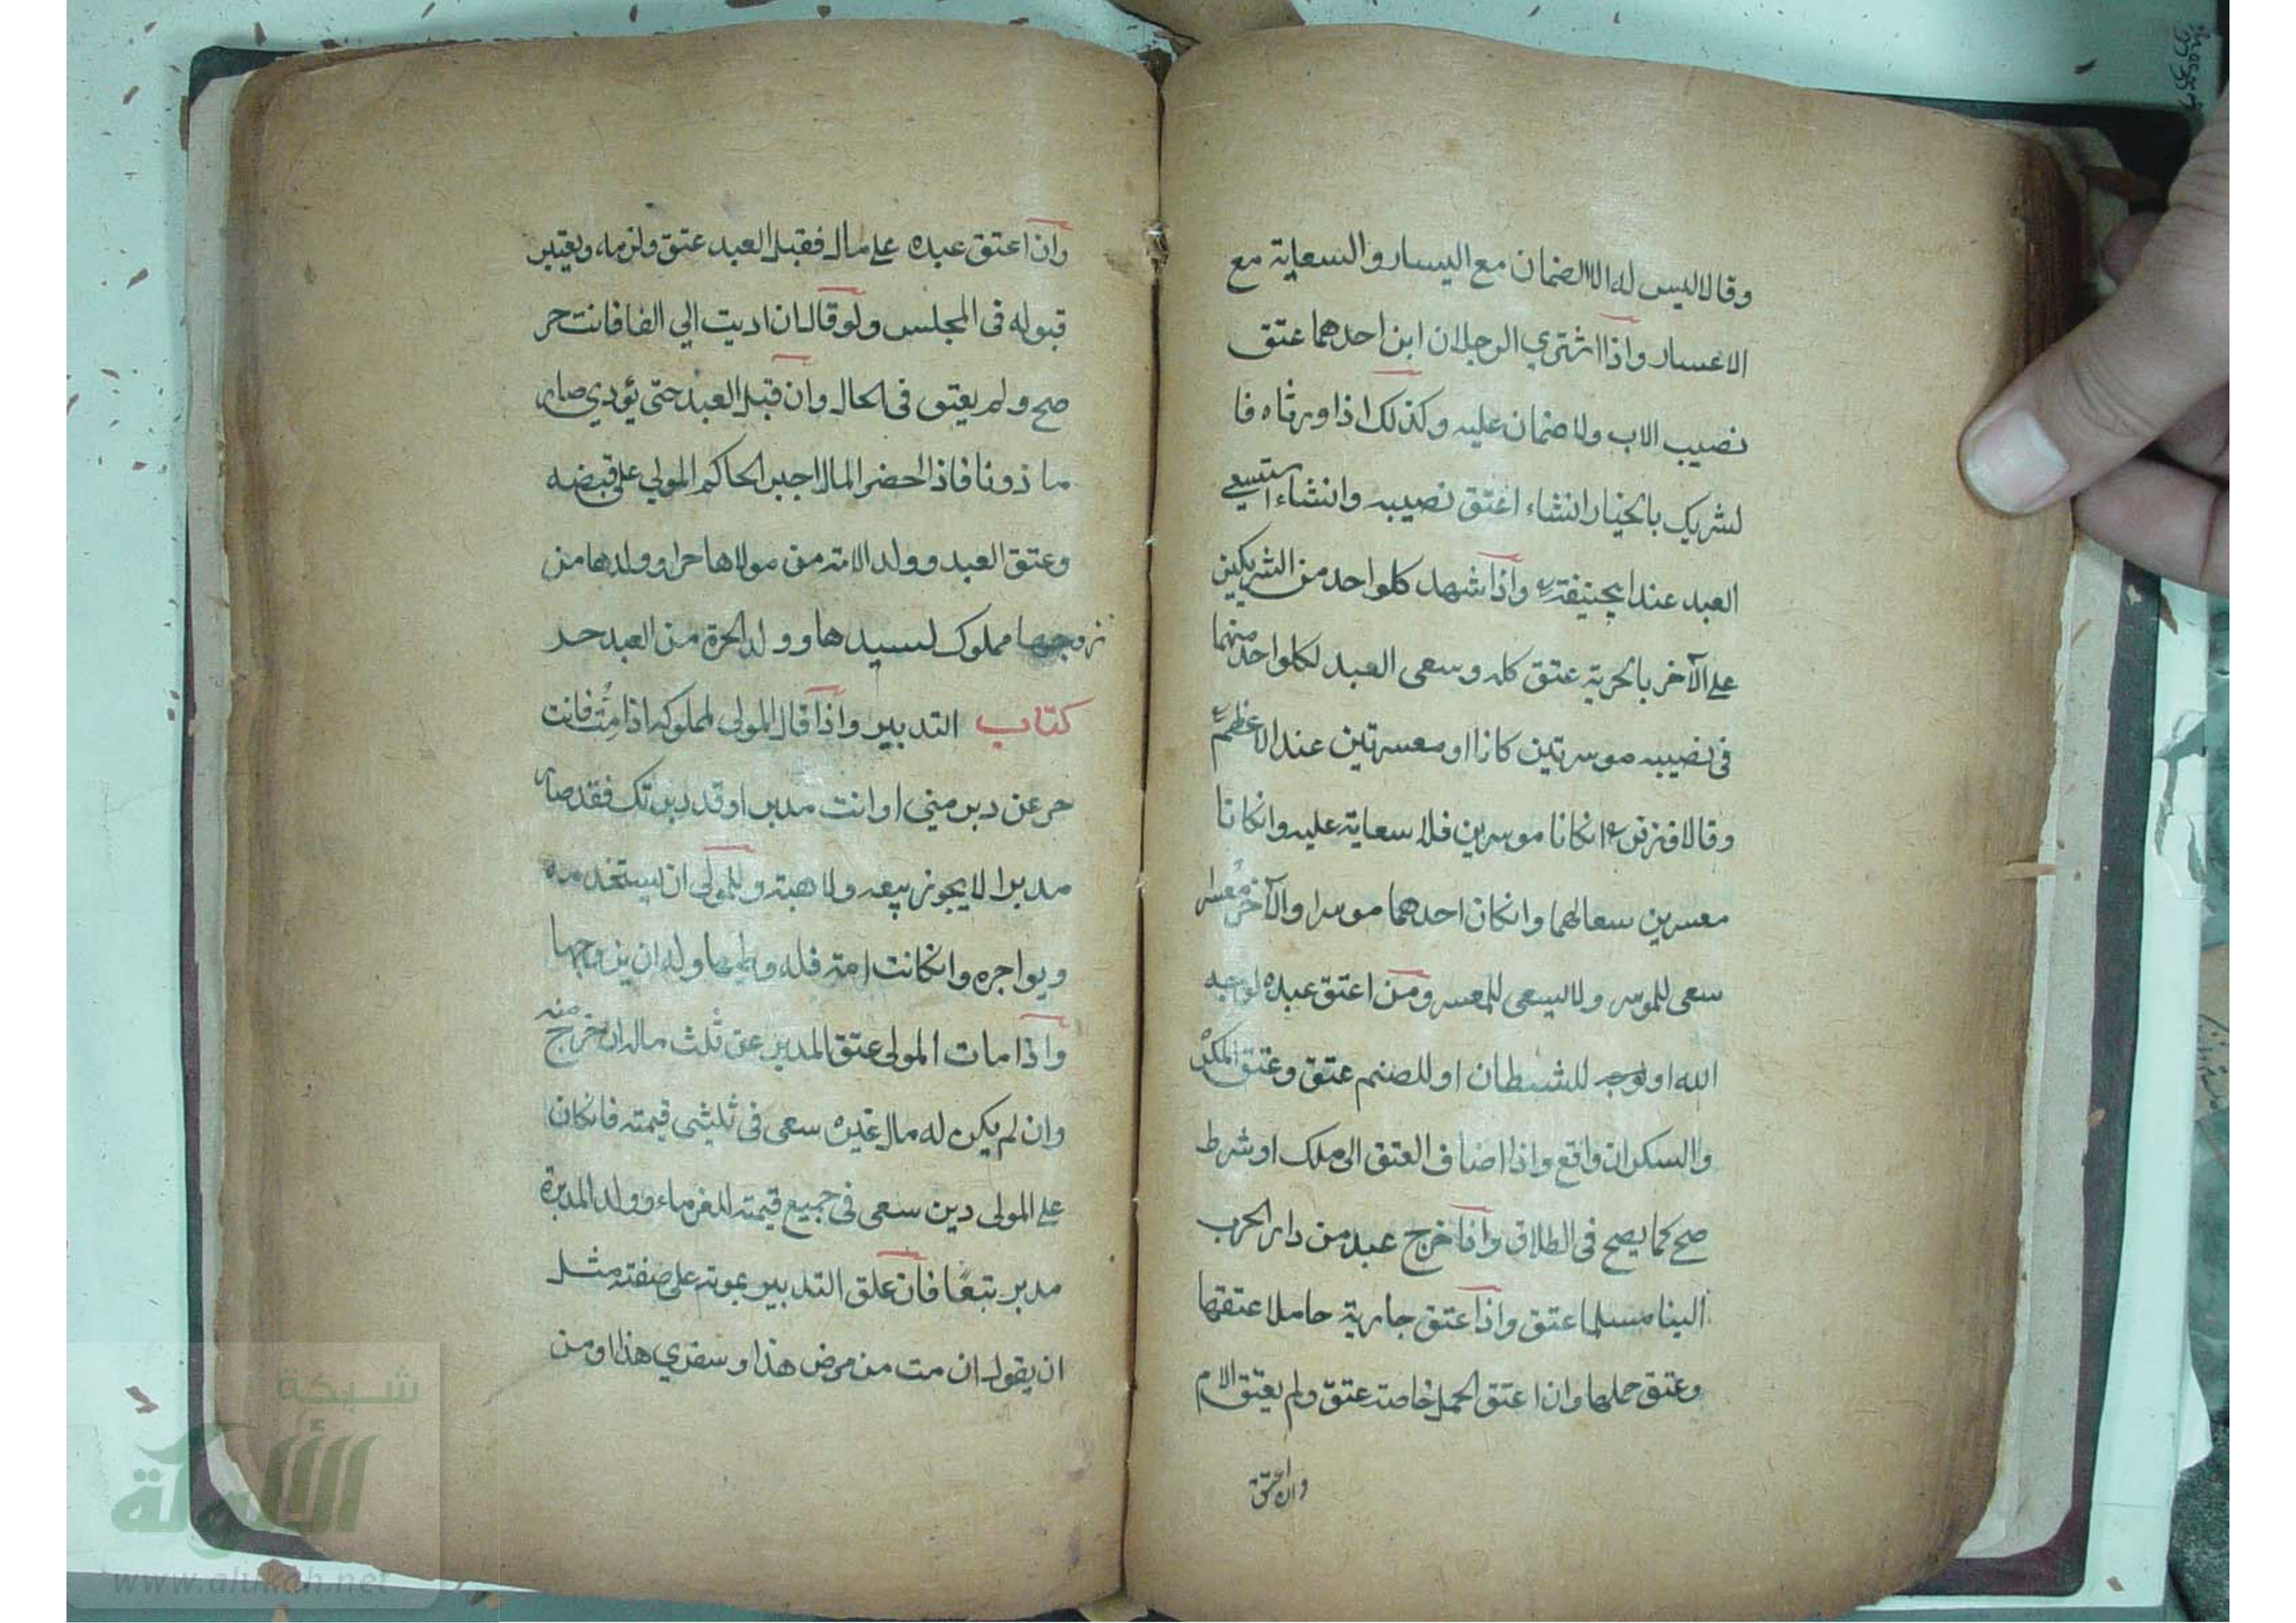 وقالا ليس له الا الضمان مع اليسار والسعاية مع
الاعسار واذا اشتري الرجلان ابن احدهما عتق
نصيب الاب ولا ضمان عليه وكذلك اذا ورثاه فا
لشريك بالخيار انشاء اعتق نصيبه وانشاء استسعي
العبد عند ابيحنيفة واذا شهد كلواحد من الشريكين
علي الآخر بالحرية عتق كله وسعى العبد لكلواحد منهما
في نصيبه موسرين كانا او معسرين عند الاعظم
وقالا انكانا موسرين فلا سعاية عليه وانكانا
معسرين سعا لهما وانكان احدهما موسرا والآخر معسرا
سعى للموسر ولا يسعى للمعسر ومن اعتق عبده لوجه
الله او لوجه للشيطان او للصنم عتق وعتق المكره
والسكران واقع واذا اضاف العتق الى ملك او شرط
صح كما يصح في الطلاق واذا خرج عبد من دار الحرب
الينا مسلما عتق واذا عتق جارية حاملا عتقها
وعتق حملها وان اعتق الحمل خاصة عتق ولم يعتق الام
وان اعتق
وان اعتق عبده علي مال فقبل العبد عتق ولزمه ويعتبر
قبوله في المجلس ولو قال ان اديت الي الفا فانت حر
صح ولم يعتق في الحال وان قبل العبد حتى يؤدي صار
ماذونا فاذا احضر المال اجبر الحاكم المولي على قبضه
وعتق العبد وولد الامة من مولاها حر وولدها من
زوجها مملوك لسيدها وولد الحرة من العبد حر
كتاب التدبير واذا قال المولى لمملوكه اذا مت فانت
حر عن دبر مني او انت مدبر او قد دبرتك فقد صار
مدبرا لا يجوز بيعه ولا هبته وللمولى ان يستخدمه
ويواجره وانكانت امة فله وطيها وله ان يزوجها
واذا مات المولى عتق المدبر عن ثلث ماله ان خرج منه
وان لم يكن له مال غيره سعى في ثلثي قيمته فانكان
علي المولى دين سعى في جميع قيمته للغرماء وولد المدبرة
مدبر تبعًا فان علق التدبير بموته على صفة مثل
ان يقول ان مت من مرض هذا او سفري هذا او من
شبكة
الألوكة
www.alukah.net